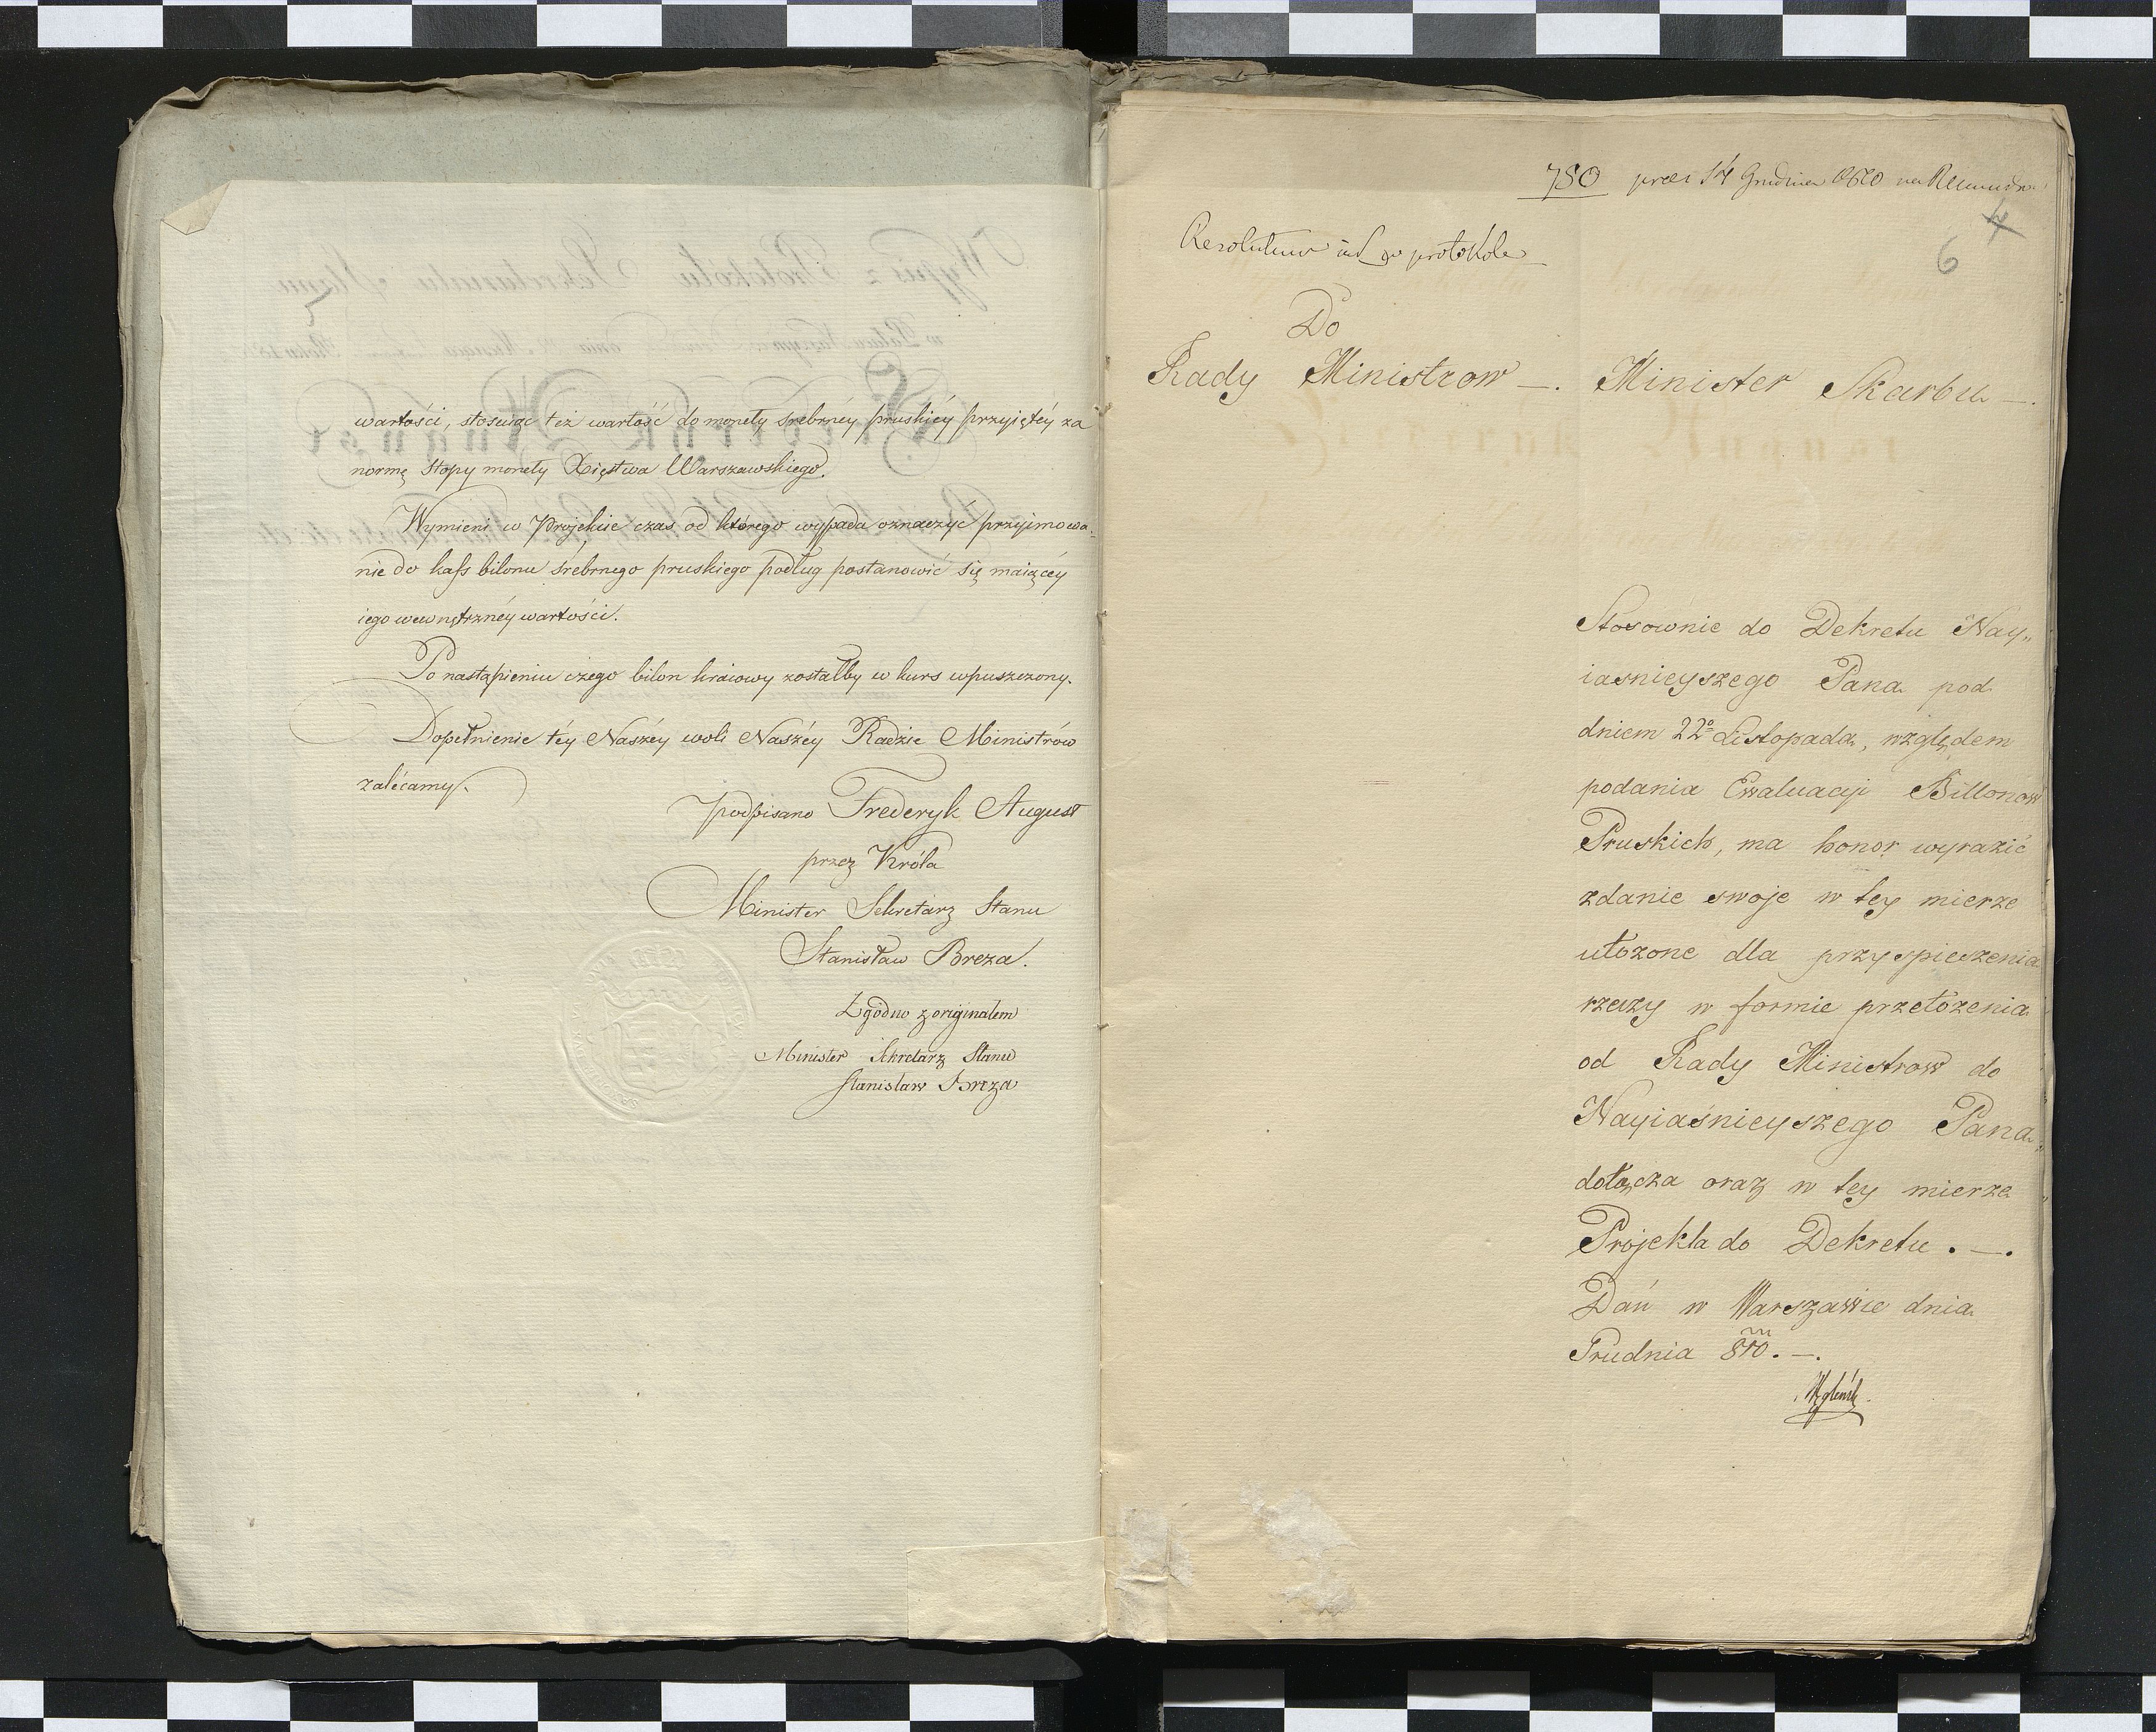 wartości, stosuiąc też wartość do monety srebrnéy pruskiéy przyiętéy za
normę Stopy monety Xięstwa Warszawskiego.
Wymieni w Projekcie czas od którego wypada oznaczyć przyjmowa-
nie do kass bilonu śrebrnego pruskiego podług postanowić się maiącéy
iego wewnętrznéy wartości.
Po nastąpieniu czego bilon kraiowy zostałby w kurs wpuszczony.
Dopełnienie téy Naszéy woli Naszéy Radzie Ministrów
zalécamy.
podpisano Frederyk August
przez Króla
Minister Sekretarz Stanu
Stanisław Breza.
Zgodno z originałem
Minister Sekretarz Stanu
Stanisław Breza
750 praes 14 Grudnia
4
6
Resolutum w protokole
Do
Rady Ministrow —. Minister Skarbu —.
Stosownie do Dekretu Nay„
iasnieyszego Pana pod
dniem 22° Listopada, względem
podania Ewaluacji Billonow
Pruskich, ma honor wyrazić
zdanie swoje w tey mierze
ułożone dla przyspieszenia
rzeczy w formie przełożenia
od Rady Ministrow do
Nayiaśnieyszego Pana
dołącza oraz w tey mierze
Projekta do Dekretu . —.
Dań w Warszawie dnia
Grudnia 810. —.
Węgleńsk